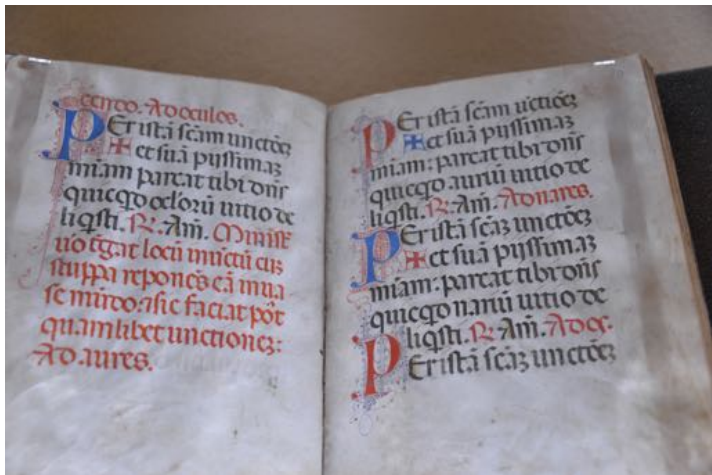 cendo. Ad oculos.
PEr istā scām unctōeȝ
✠ et suā pyssimaȝ
miam: parcat tibi dn̄s
quicqd ocl'orū uitio de
liqsti. R. Am̄. Minist
uo tēgat locū
stuppa
se mūdo: ⁊ sic faciat pōt
quamlibet unctioneȝ:
Ad aures.
PEr istā scām uctōeȝ
✠ et suā pyssimaȝ
miam: parcat tibi dn̄s
quicqd auriū uitio de
liqsti. R. Am̄. Ad nares.
PEr istā scāȝ unctōeȝ
✠ et suā pyssimaȝ
miam: parcat tibi dn̄s
quicqd nariū uitio de
liqsti. R. Am̄. Ad os.
PEr istā scāȝ unctōeȝ